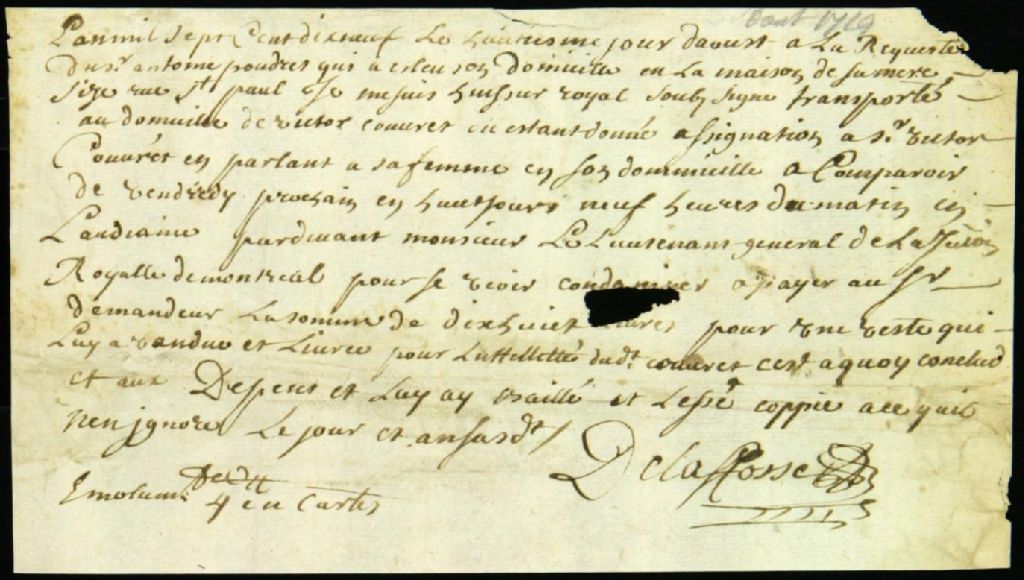 aout 1719
Lanmil sept Cent dixneuf Le huitiesme jour daoust a La Requeste
Du sr antoine poudret qui a esleu son domicille en La maison de sa mere,
size rue st paul Je me suis huissier royal soubz signe transporté
au domicille de victor couvret ou estant donné assignation a sr victor
Couvret en parlant a sa femme en son dommicille a Comparoir
de vendredy prochain en huit jours neuf heures du matin en
Laudiance pardevant monsieur Le Lieutenant general de La
Royalle de montreal pour se veoir condamner a payer au sr
demandeur La somme de dixhuict livres pour une veste qui
Luy a vandue et Livrée pour dudt couvret cest a quoy conclud
et aux Depens et Luy ay baillé et Lessé coppie a ce quil
nen jgnore Le jour et an susdt /
DelaFosse
Emolumt
4 en Cartes